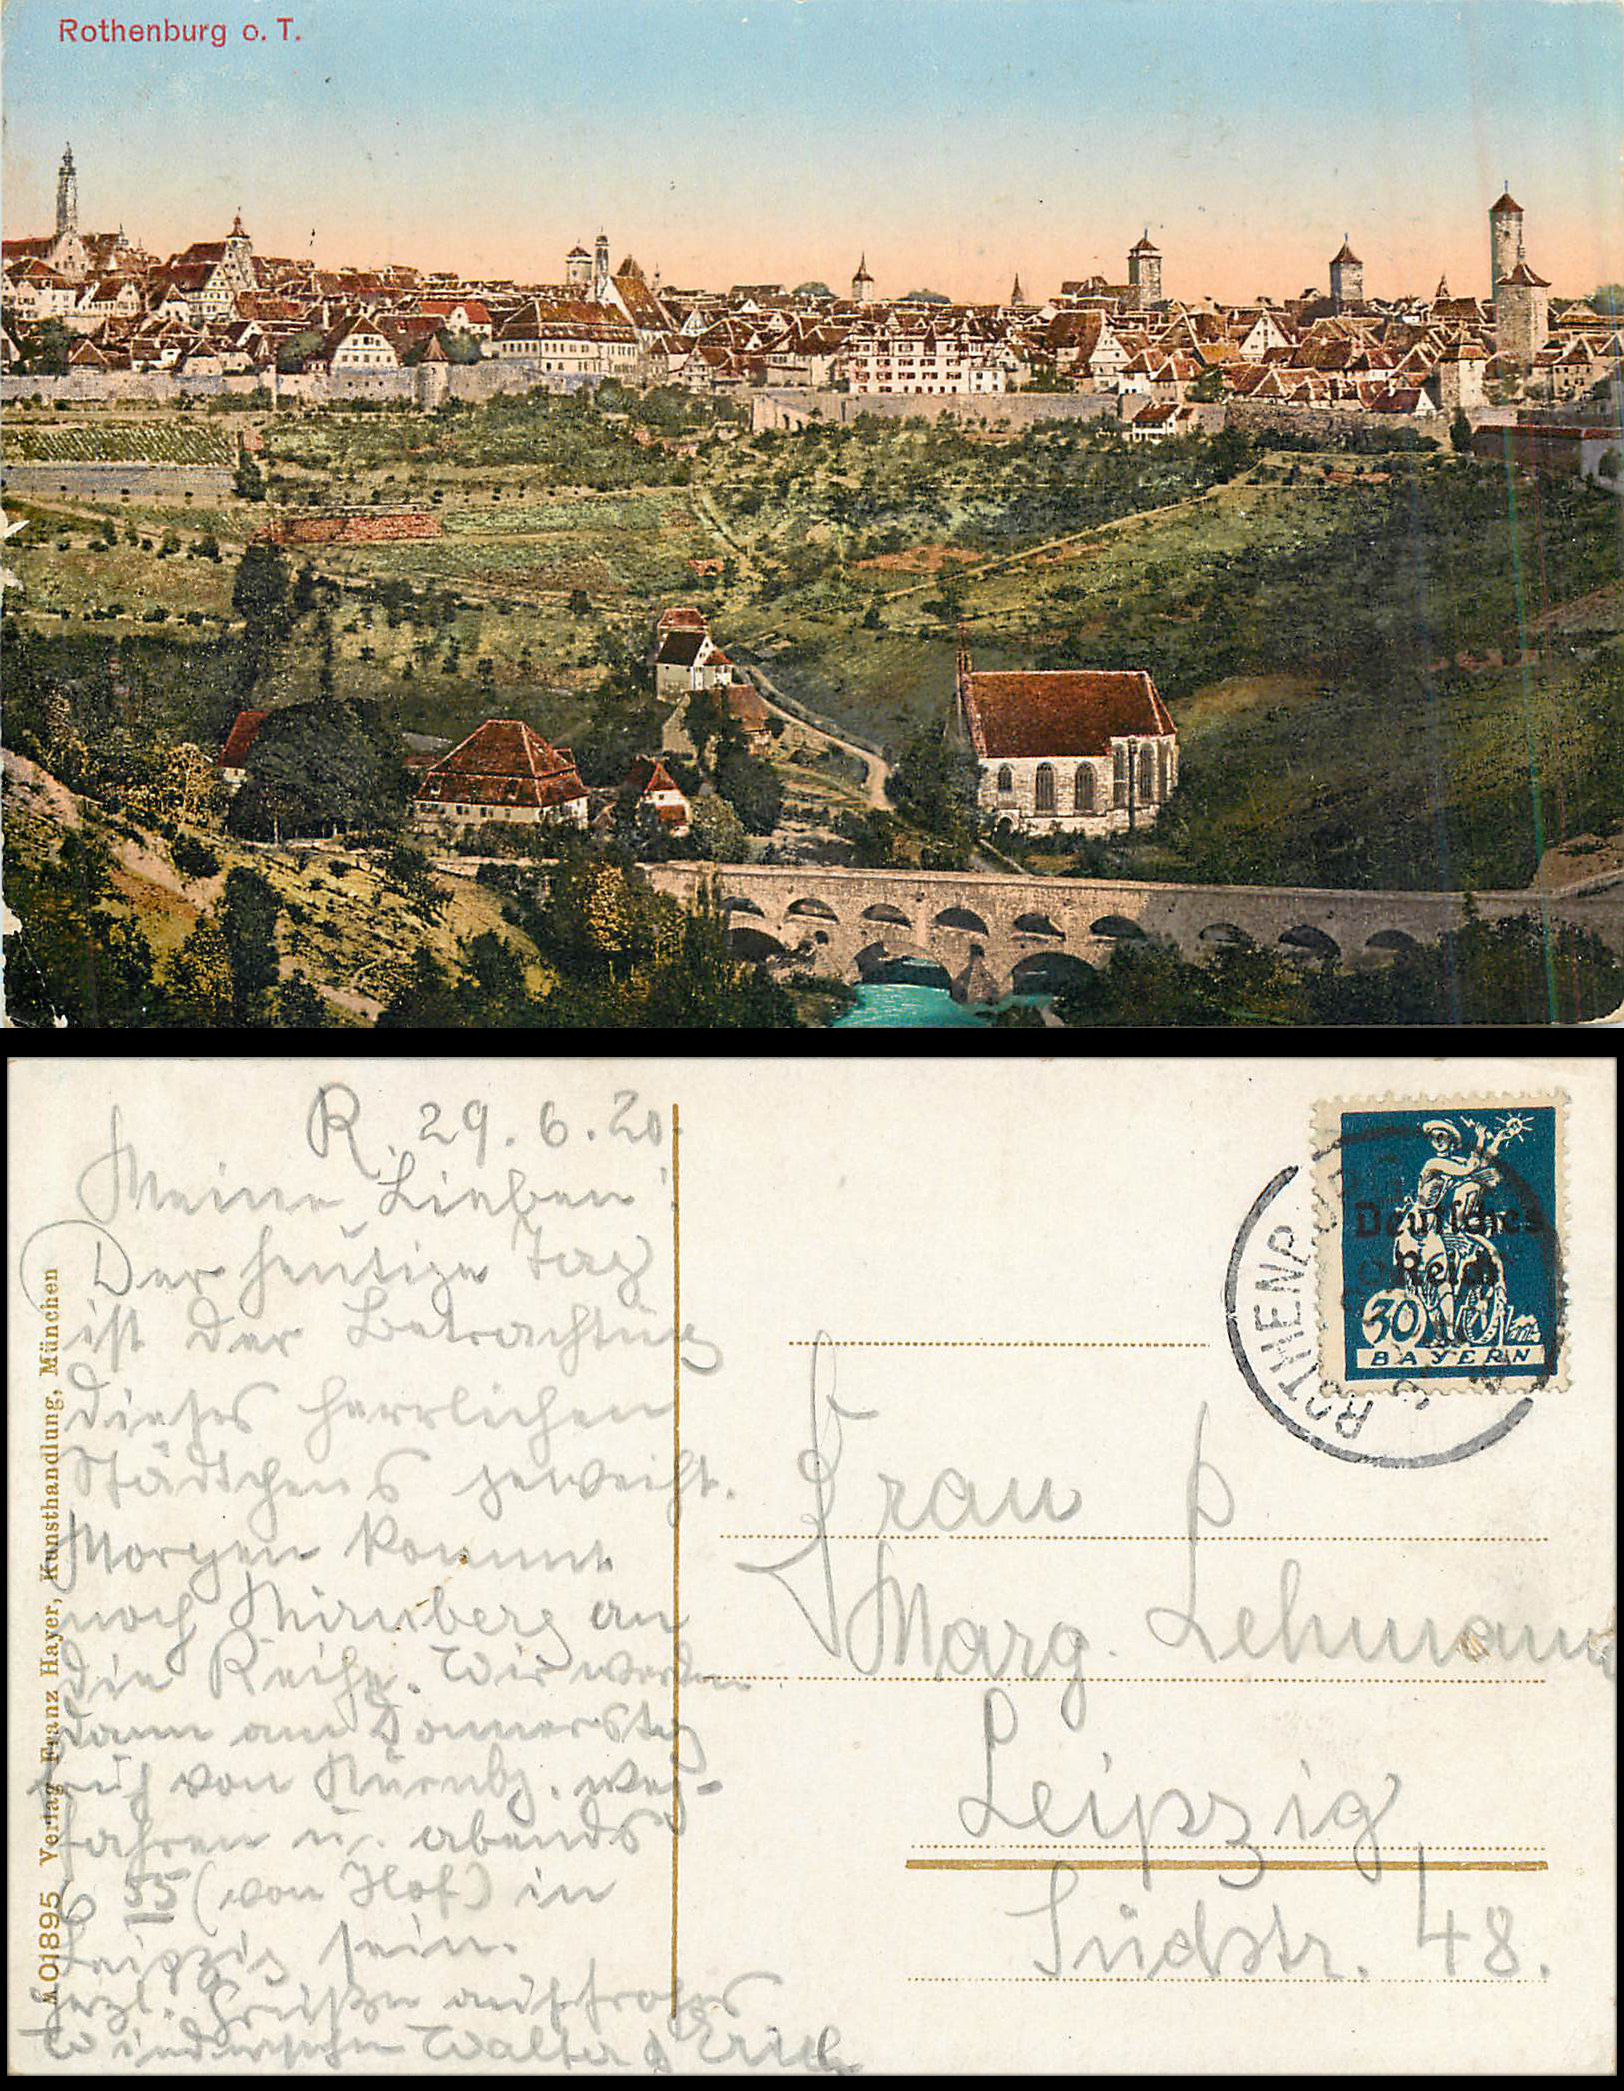 Rothenburg o. T.
R. 29. 6. 20.
Meine Lieben!
Der heutige Tag
ist der Betrachtung
dieses herrlichen
Städtchens geweiht.
Morgen kommt
noch Nürnberg an
die Reihe. Wir werden
dann am Donnerstag
früh von Nürnbg. weg-
fahren u. abends
6 55 (von Hof) in
Leipzig sein.
Herzl. Grüße auf frohes
Wiedersehen Walter & Erich
M 01895 Verlag Franz Hayer, Kunsthandlung, München
Deutsches
Reich
30
BAYERN
ROTHENB
Frau
Marg. Lehmann
Leipzig
Südstr. 48.